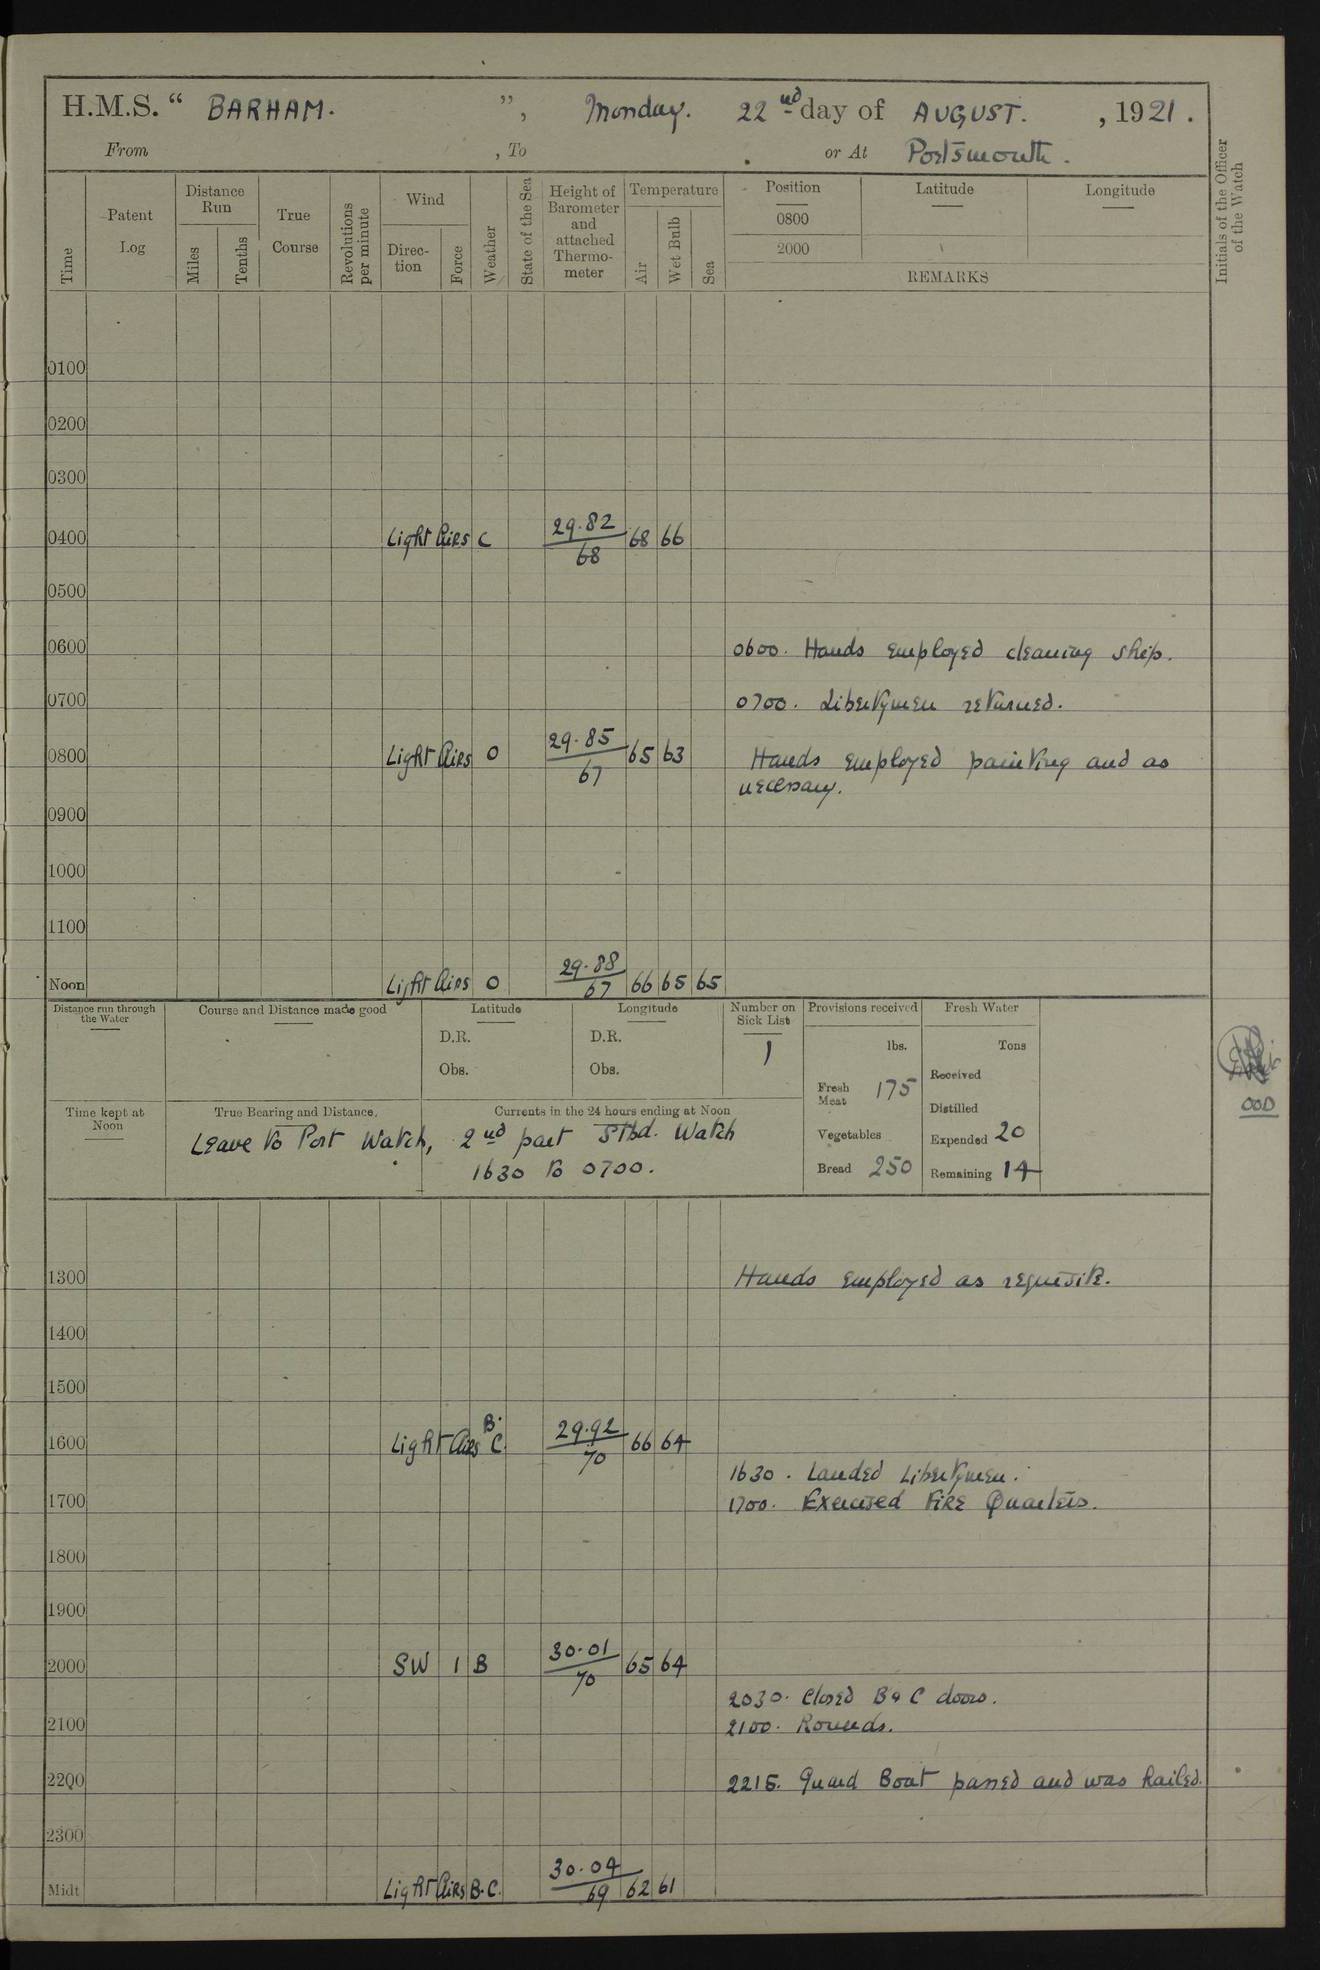 H.M.S. “ BARHAM. ”, Monday. 22nd day of AUGUST. , 1921.
From , To or At Portsmouth.
Time
Patent Log
Distance Run
Miles
Tenths
True Course
Revolutions per minute
Wind
Direc-tion
Force
Weather
State of the Sea
Height of Barometer and attached Thermo-meter
Temperature
Air
Wet Bulb
Sea
Position
0800
2000
Latitude
Longitude
REMARKS
Initials of the Officer of the Watch
0100
0200
0300
0400 Light Airs C 29.82/68 68 66
0500
0600 0600. Hands employed cleaning ship.
0700 0700. Libertymen returned.
0800 Light Airs O 29.85/67 65 63 Hands employed painting and as
necessary.
0900
1000
1100
Noon Light Airs O 29.88/67 66 65 65
Distance run through the Water
Course and Distance made good
Latitude
D.R.
Obs.
Longitude
D.R.
Obs.
Number on Sick List
1
Provisions received
lbs.
Fresh Meat 175
Vegetables
Bread 250
Fresh Water
Tons
Received
Distilled
Expended 20
Remaining 14
OOD
Time kept at Noon
True Bearing and Distance.
Currents in the 24 hours ending at Noon
Leave to Port Watch, 2nd part Stbd. Watch
1630 to 0700.
1300 Hands employed as requisite.
1400
1500
1600 Light Airs B.C. 29.92/70 66 64
1630. Landed Libertymen.
1700 1700. Exercised Fire Quarters.
1800
1900
2000 SW 1 B 30.01/70 65 64
2030. Closed B & C doors.
2100 2100. Rounds.
2200 2215. Guard Boat passed and was hailed.
2300
Midt Light Airs B.C. 30.04/69 62 61